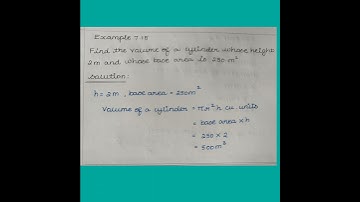 Example 7.15
Find the volume of a cylinder whose height
2m and whose base area is 250 m²
Solution:
h = 2m, base area = 250m²
Volume of a cylinder = πr²h cu. units
= base area × h
= 250 × 2
= 500m³